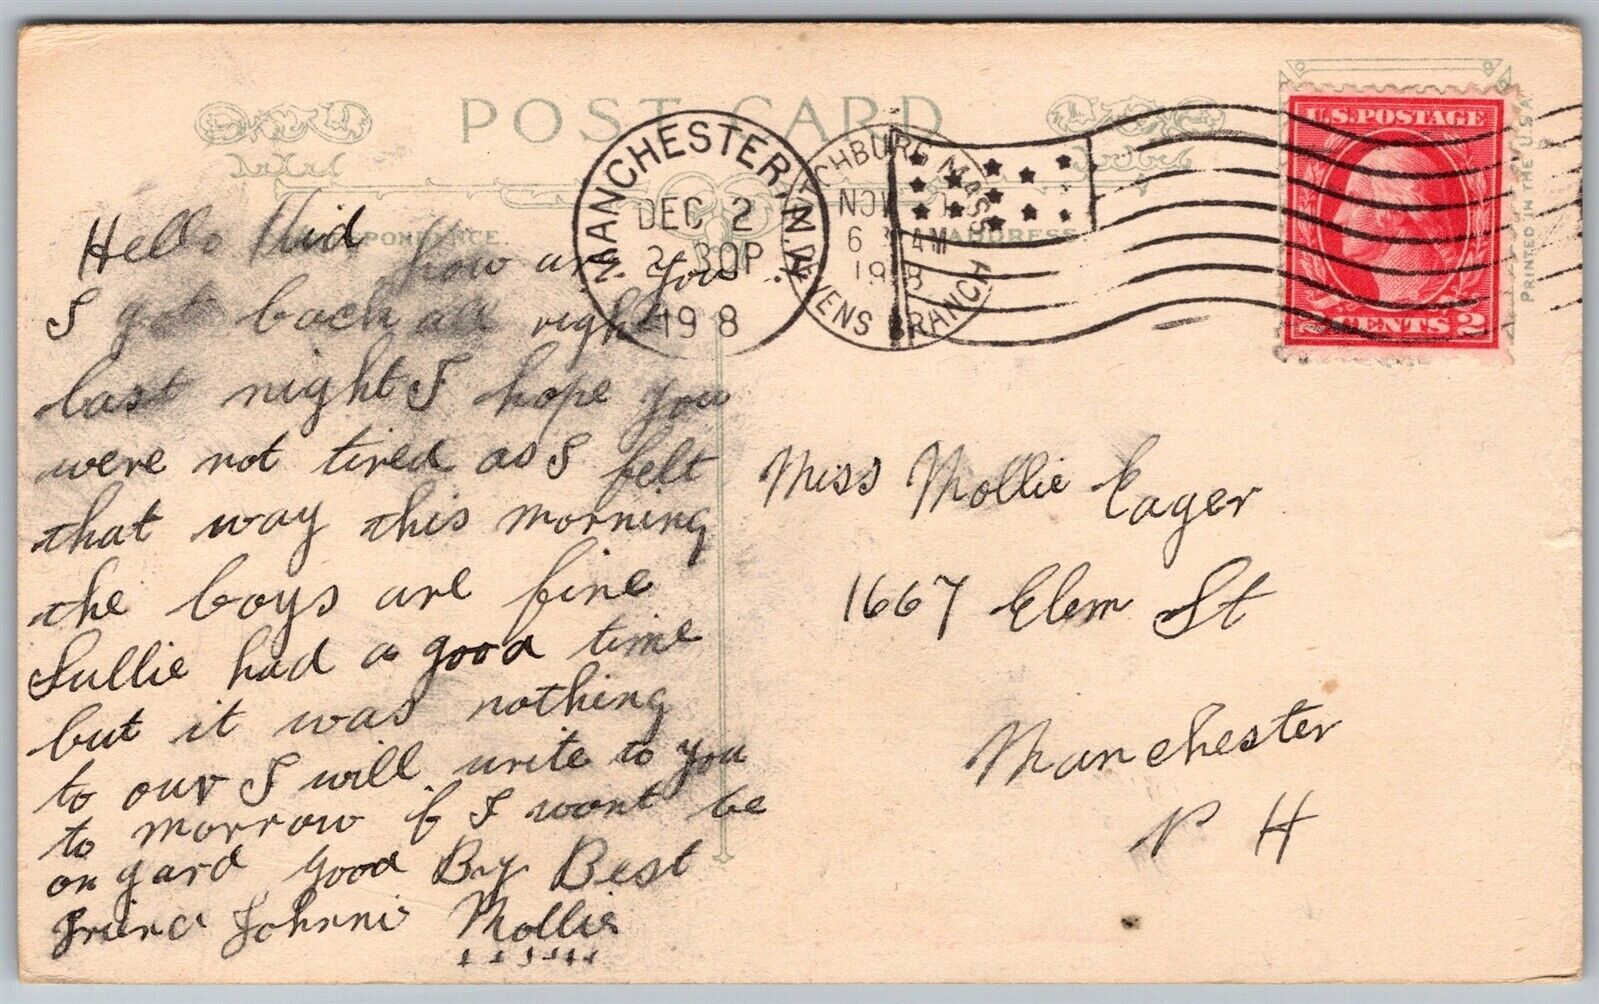 POST CARD
CORRESPONDENCE.
ADDRESS.
PRINTED IN THE U.S.A.
MANCHESTER, N.H.
DEC 2
2-30P
19 8
TCHBURG MASS
NOV
6 AM
1918
DEVENS BRANCH
U.S.POSTAGE
2 CENTS 2
Hello Kid
how are you
I got back all right
last night I hope you
were not tired as I felt
that way this morning
the boys are fine
Sullie had a good time
but it was nothing
to our I will write to you
to morrow if I wont be
on gard good By Best
Friend Johnni Mollie
++++++
Miss Mollie Eager
1667 Elem St
Manchester
N H